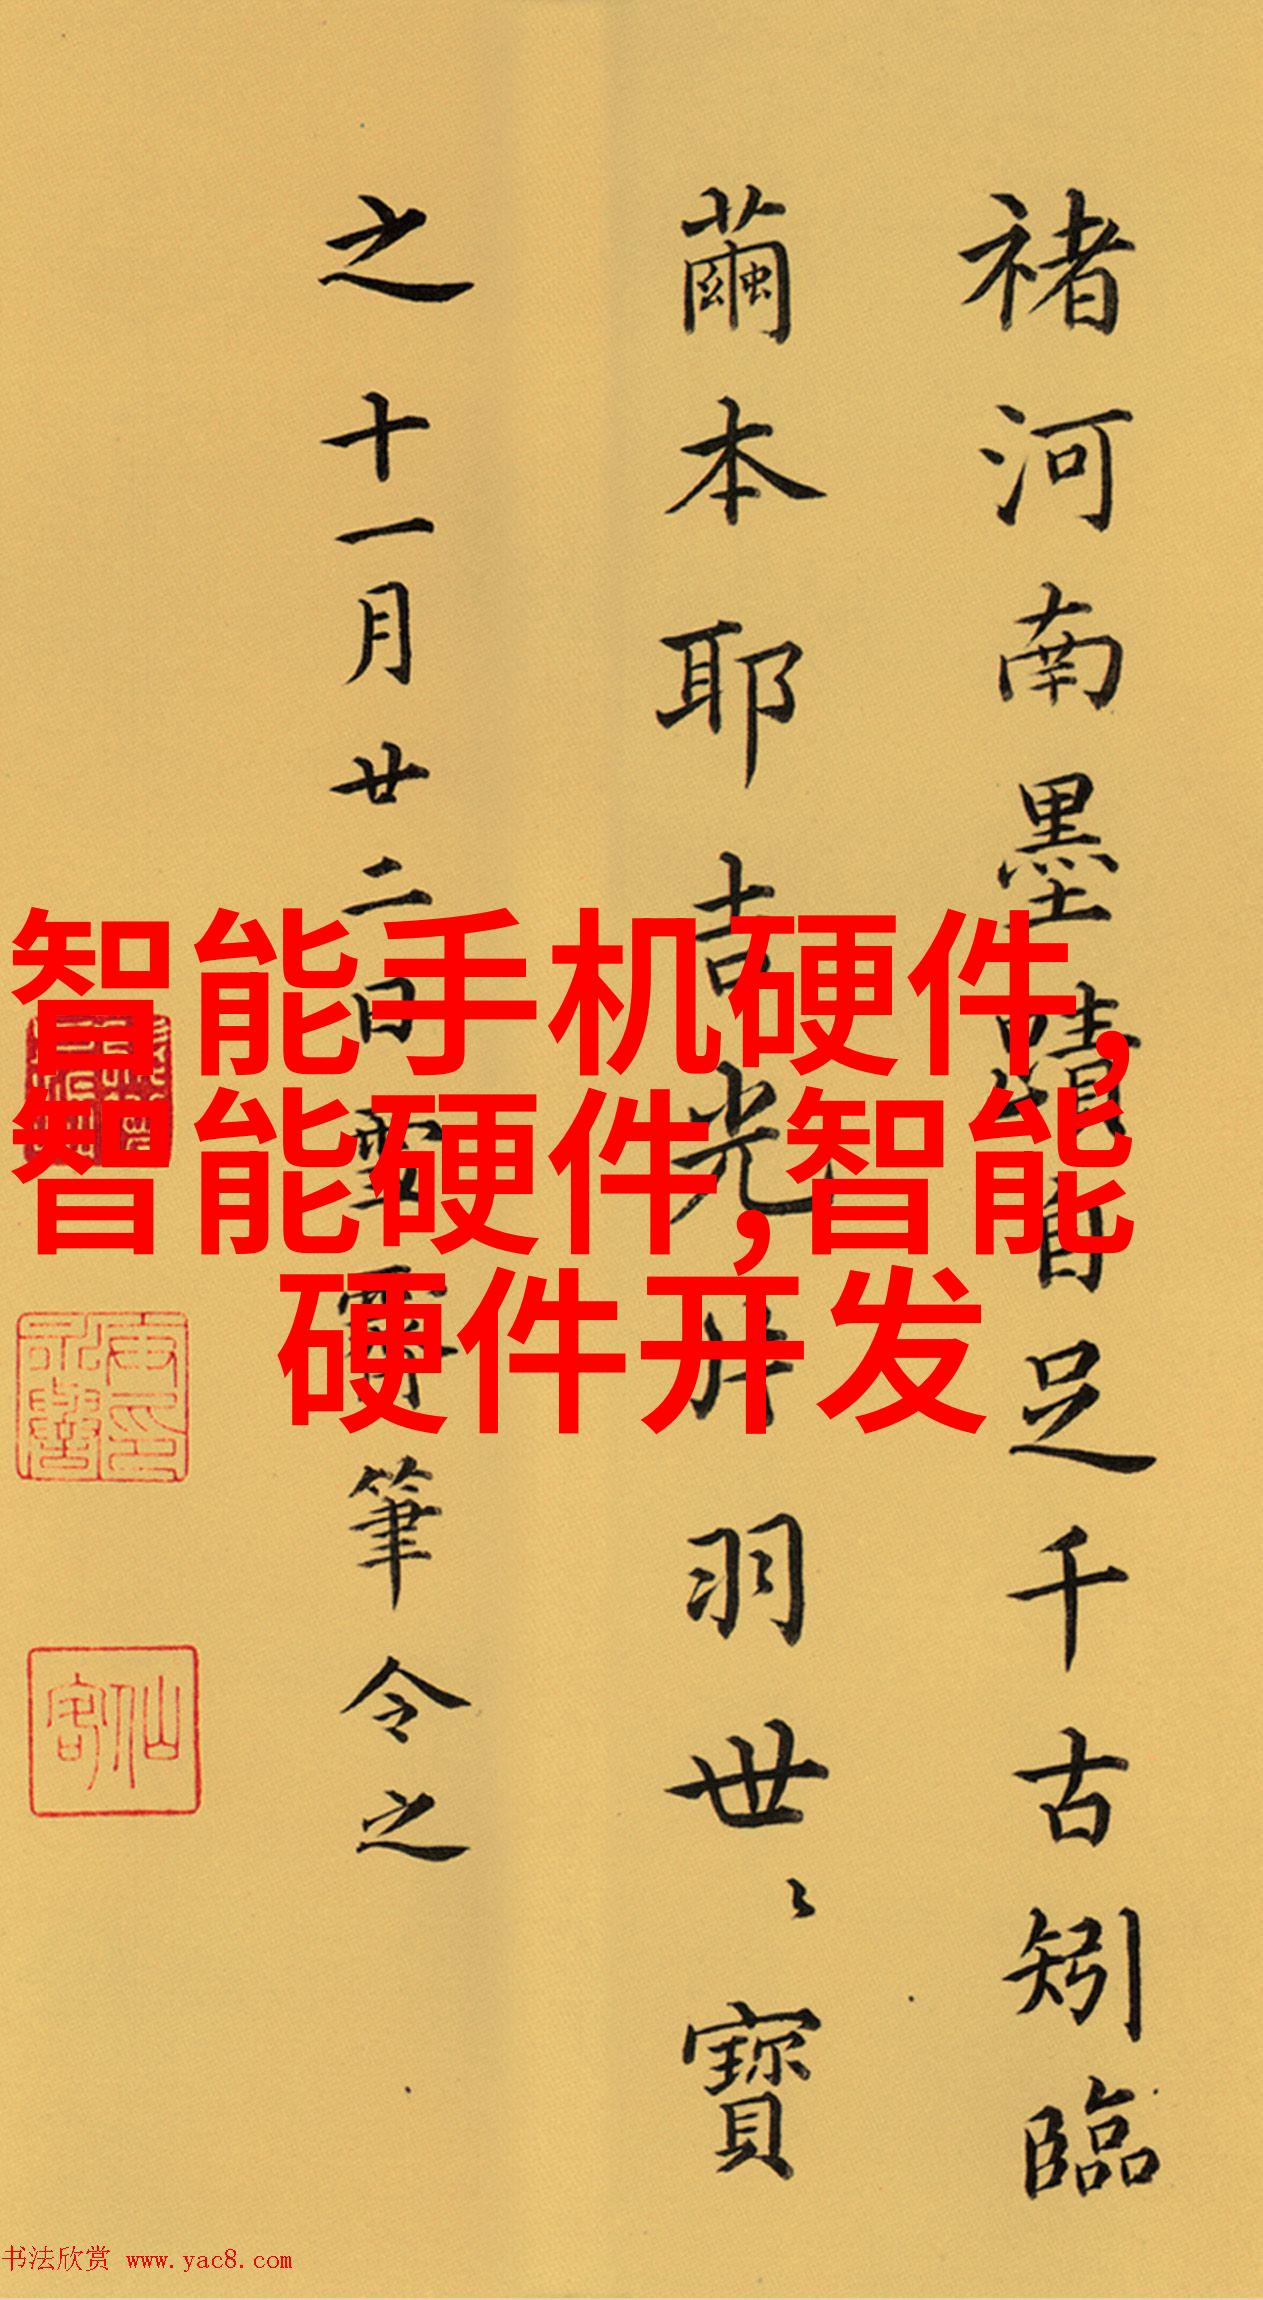 褚河南墨蹟自足千古矧臨
繭本耶吉光片羽世〻寶
之十一月廿二日雪霽筆令之
智能手机硬件,
智能硬件,智能
硬件开发
仙客
书法欣赏 www.yac8.com